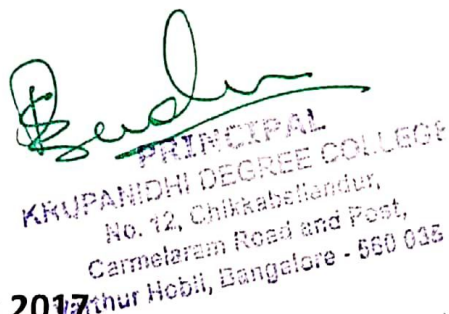 PRINCIPAL
KRUPANIDHI DEGREE COLLEGE
No. 12, Chikkabellandur,
Carmelaram Road and Post,
Varthur Hobli, Bangalore - 560 035
2017